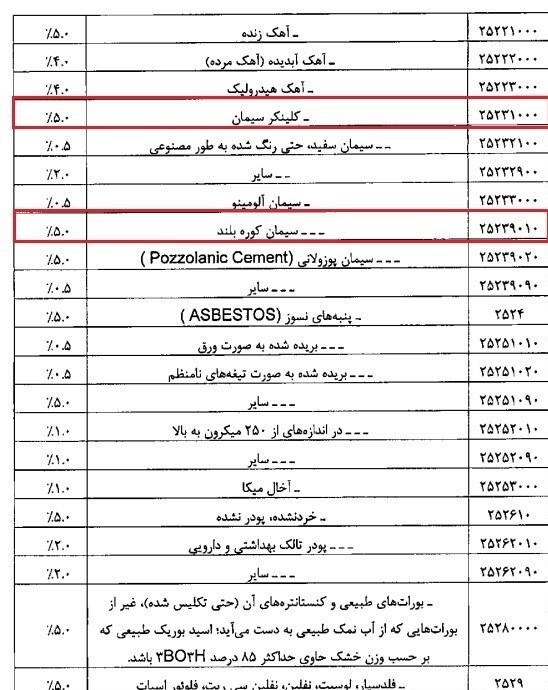 ۲۵۲۲۱۰۰۰ ـ آهک زنده ٪۵.۰
۲۵۲۲۲۰۰۰ ـ آهک آبدیده (آهک مرده) ٪۴.۰
۲۵۲۲۳۰۰۰ ـ آهک هیدرولیک ٪۴.۰
۲۵۲۳۱۰۰۰ ـ کلینکر سیمان ٪۵.۰
۲۵۲۳۲۱۰۰ ـ ـ سیمان سفید، حتی رنگ شده به طور مصنوعی ٪۰.۵
۲۵۲۳۲۹۰۰ ـ ـ سایر ٪۲.۰
۲۵۲۳۳۰۰۰ ـ سیمان آلومینو ٪۰.۵
۲۵۲۳۹۰۱۰ ـ ـ ـ سیمان کوره بلند ٪۵.۰
۲۵۲۳۹۰۲۰ ـ ـ ـ سیمان پوزولانی (Pozzolanic Cement ) ٪۵.۰
۲۵۲۳۹۰۹۰ ـ ـ ـ سایر ٪۰.۵
۲۵۲۴ ـ پنبه‌های نسوز (ASBESTOS ) ٪۵.۰
۲۵۲۵۱۰۱۰ ـ ـ ـ بریده شده به صورت ورق ٪۰.۵
۲۵۲۵۱۰۲۰ ـ ـ ـ بریده شده به صورت تیغه‌های نامنظم ٪۰.۵
۲۵۲۵۱۰۹۰ ـ ـ ـ سایر ٪۵.۰
۲۵۲۵۲۰۱۰ ـ ـ ـ در اندازه‌های از ۲۵۰ میکرون به بالا ٪۱.۰
۲۵۲۵۲۰۹۰ ـ ـ ـ سایر ٪۱.۰
۲۵۲۵۳۰۰۰ ـ آخال میکا ٪۱.۰
۲۵۲۶۱۰ ـ خردنشده، پودر نشده ٪۵.۰
۲۵۲۶۲۰۱۰ ـ ـ ـ پودر تالک بهداشتی و دارویی ٪۲.۰
۲۵۲۶۲۰۹۰ ـ ـ ـ سایر ٪۲.۰
ـ بورات‌های طبیعی و کنسانتره‌های آن (حتی تکلیس شده)، غیر از
۲۵۲۸۰۰۰۰ بورات‌هایی که از آب نمک طبیعی به دست می‌آید؛ اسید بوریک طبیعی که ٪۵.۰
بر حسب وزن خشک حاوی حداکثر ۸۵ درصد ۳BO۳H باشد.
۲۵۲۹ ـ فلدسپار، لوسیت، نفلین، نفلین سی ریت، فلوئور اسپات ٪۵.۰